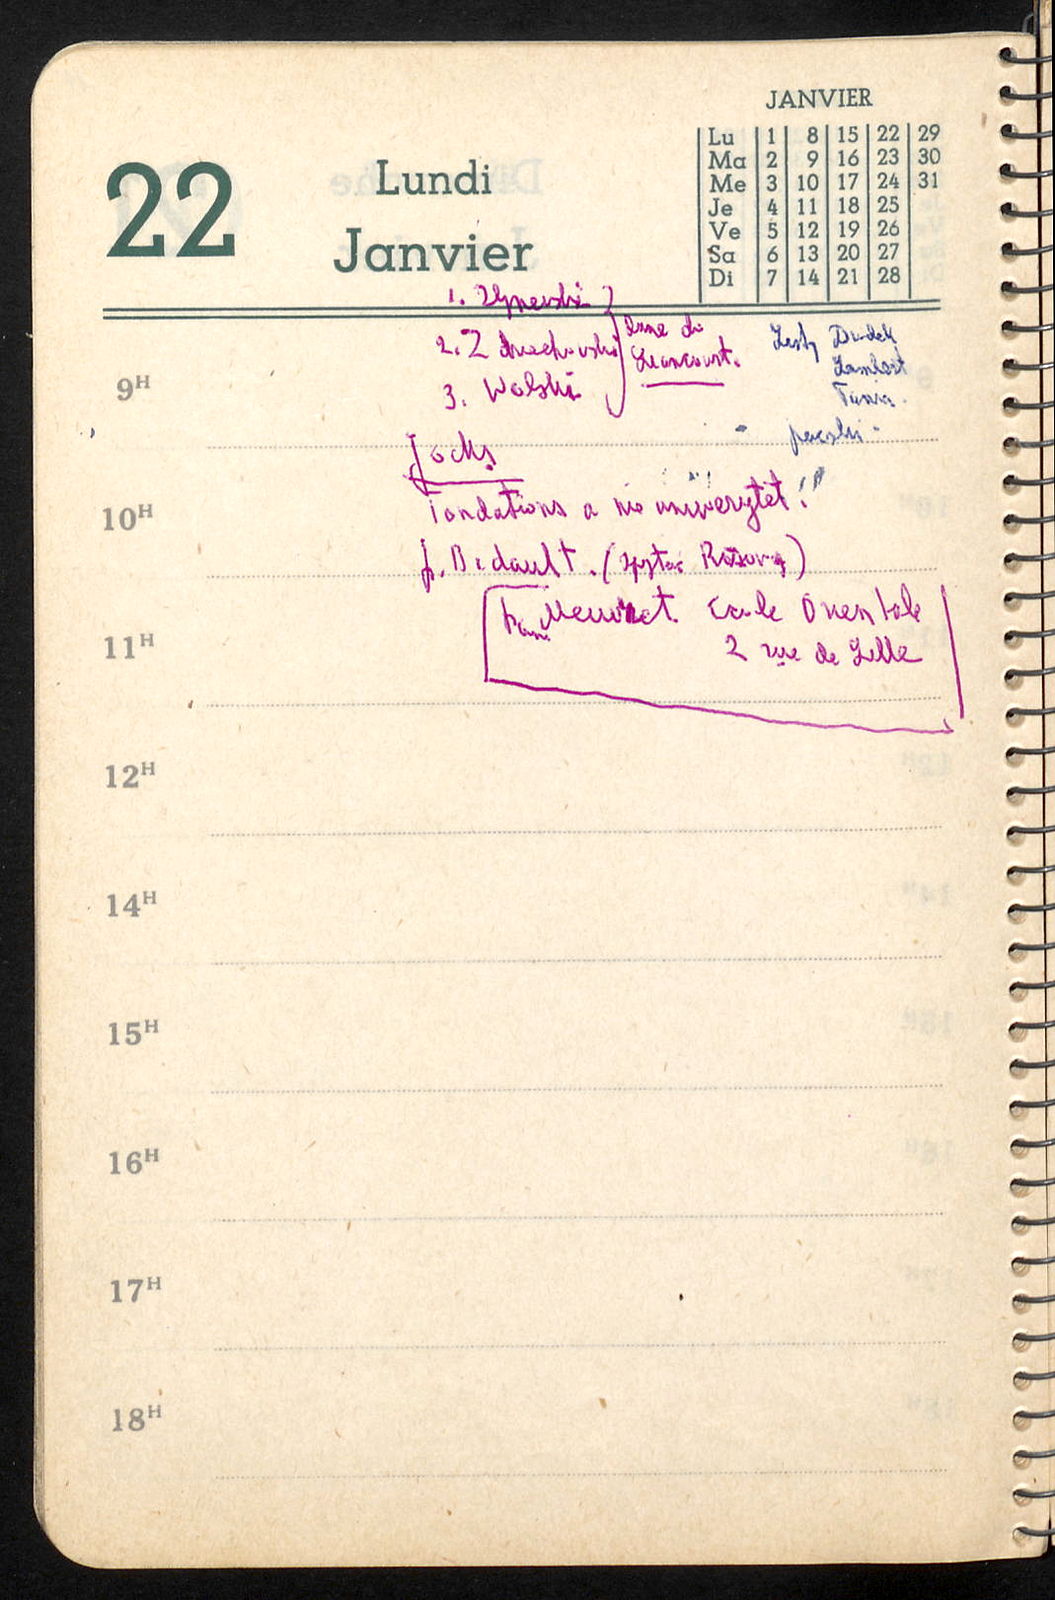 JANVIER
22 Lundi
Janvier
Lu 1 8 15 22 29
Ma 2 9 16 23 30
Me 3 10 17 24 31
Je 4 11 18 25
Ve 5 12 19 26
Sa 6 13 20 27
Di 7 14 21 28
1.
2. Z
3. Wolski
Listy Dudek
Lambert
9H
Jocks
10H
Fondations a nie uniwersytet!
p. Bidault. (
11H
Meuvret Ecole Orientale
2 rue de Lille
12H
14H
15H
16H
17H
18H